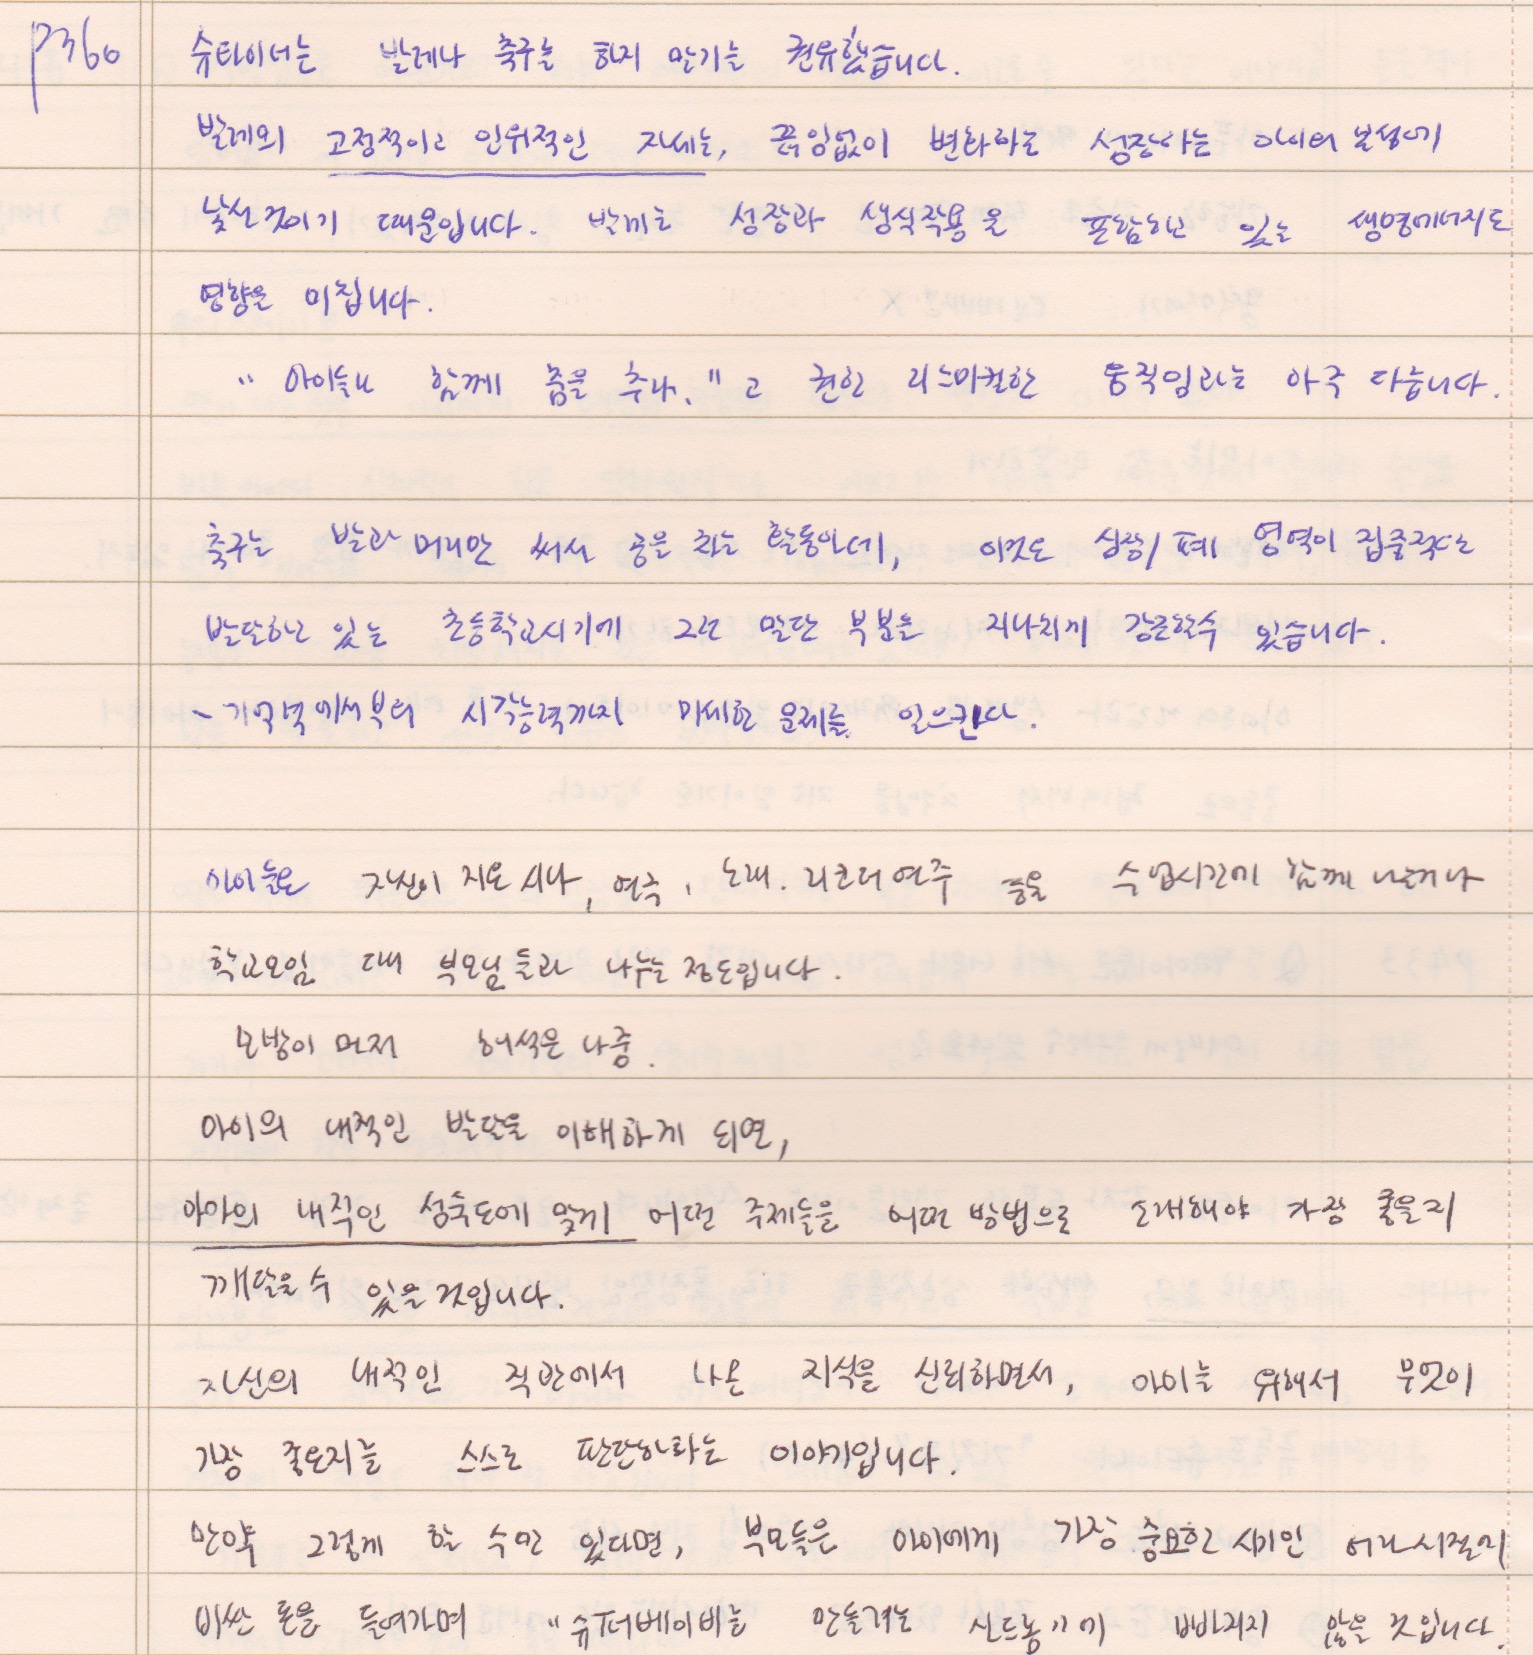 P360 슈타이너는 발레나 축구를 하지 말기를 권유했습니다.
발레의 고정적이고 인위적인 자세는, 끊임없이 변화하는 성장하는 아이의 본성에
낯선것이기 때문입니다. 발레는 성장과 생식작용을 포함하고 있는 생명에너지도
영향을 미칩니다.
"아이들과 함께 춤을 추라."고 권한 리드미컬한 움직임과는 아주 다릅니다.
축구는 발과 머리만 써서 공을 차는 활동인데, 이것도 심장/폐 영역이 집중적으로
발달하고 있는 초등학교시기에 그런 말단 부분을 지나치게 강조할수 있습니다.
- 기억력에서부터 시각능력까지 미세한 문제를 일으킨다.
아이들은 자신이 지은 시나, 연극, 노래. 리코더연주 등을 수업시간에 함께 나누거나
학교모임 때 부모님들과 나누는 정도입니다.
모방이 먼저 해석은 나중.
아이의 내적인 발달을 이해하게 되면,
아이의 내적인 성숙도에 맞게 어떤 주제들을 어떤 방법으로 소개해야 가장 좋을지
깨달을 수 있을 것입니다.
자신의 내적인 직관에서 나온 지식을 신뢰하면서, 아이를 위해서 무엇이
가장 좋은지를 스스로 판단하라는 이야기입니다.
만약 그렇게 할 수만 있다면, 부모들은 아이에게 가장 중요한 시기인 어린시절에
비싼 돈을 들여가며 "슈퍼베이비를 만들려는 신드롬"에 빠지지 않을 것입니다.